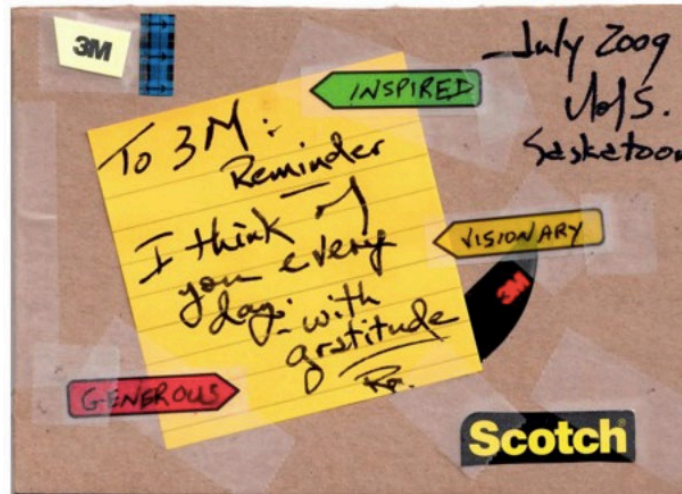 3M
July 2009
U of S.
Saskatoon
INSPIRED
To 3M:
Reminder
I think of
you every
day: with
gratitude
VISIONARY
3M
GENEROUS
Scotch